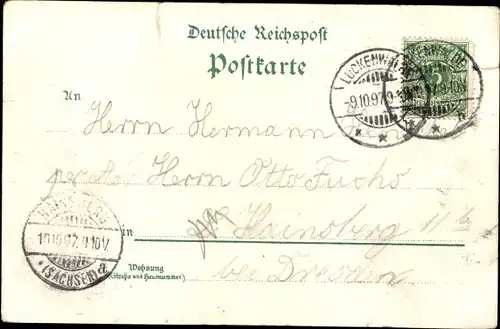 Deutsche Reichspost
Postkarte
LUCKENWALDE
9.10.97 9-10V.
An
Herrn Hermann
per Herrn Otto Fuchs
HAINSBERG
10.10.97. 9-10V.
(SACHSEN) a
in Hainsberg
bei Dresden
Wohnung
(Straße und Hausnummer)